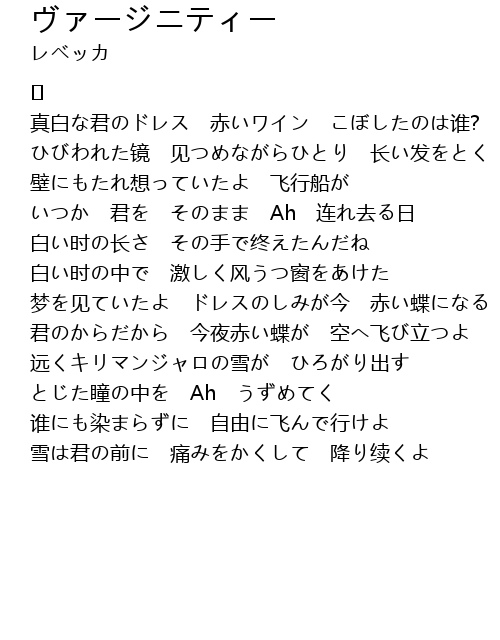 ヴァージニティー
レベッカ
真白な君のドレス　赤いワイン　こぼしたのは谁?
ひびわれた镜　见つめながらひとり　长い发をとく
壁にもたれ想っていたよ　飞行船が
いつか　君を　そのまま　Ah　连れ去る日
白い时の长さ　その手で终えたんだね
白い时の中で　激しく风うつ窗をあけた
梦を见ていたよ　ドレスのしみが今　赤い蝶になる
君のからだから　今夜赤い蝶が　空へ飞び立つよ
远くキリマンジャロの雪が　ひろがり出す
とじた瞳の中を　Ah　うずめてく
谁にも染まらずに　自由に飞んで行けよ
雪は君の前に　痛みをかくして　降り续くよ